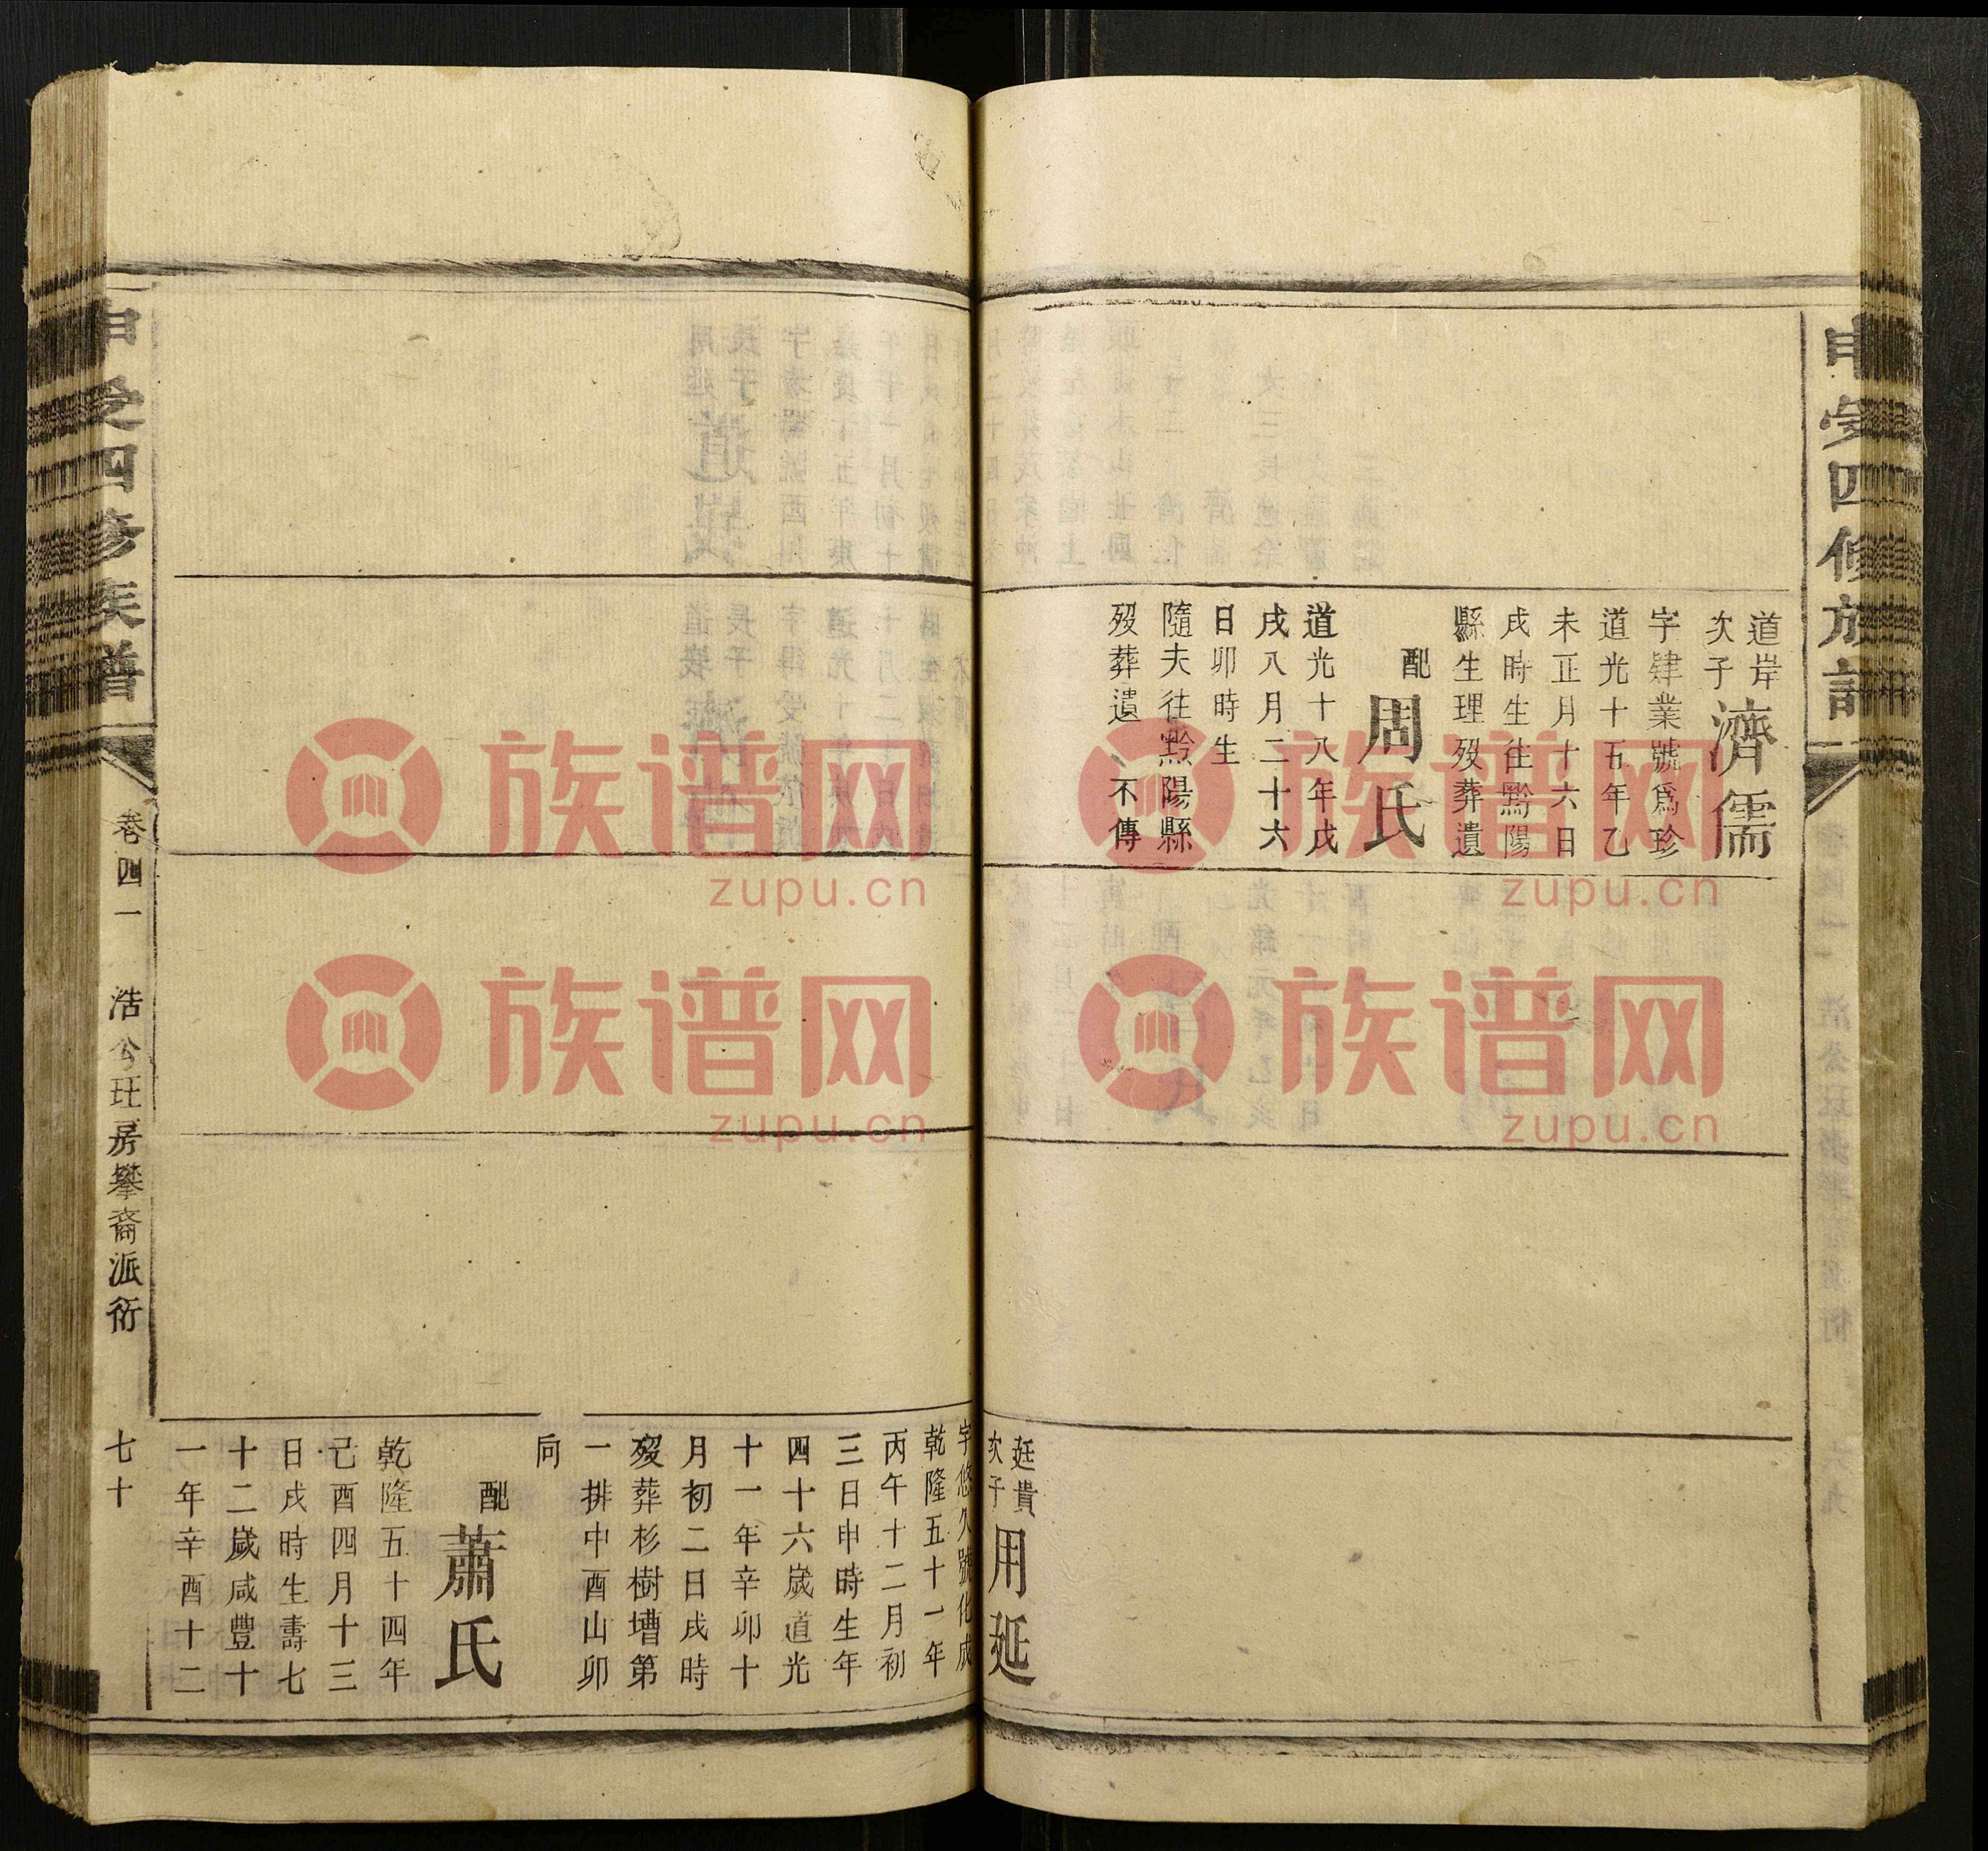 申受四修族譜
道岸
次子
濟儒
字肄業號爲珍
道光十五年乙
未正月十六日
戌時生往黔陽
縣生理歿葬遺
配
周氏
道光十八年戊
戌八月二十六
日卯時生
隨夫往黔陽縣
歿葬遺、不傳
廷貴
次子
用延
字悠久號化成
乾隆五十一年
丙午十二月初
三日申時生年
四十六歲道光
十一年辛卯十
月初二日戌時
歿葬杉樹壋第
一排中酉山卯
向
配
蕭氏
乾隆五十四年
己酉四月十三
日戌時生壽七
十二歲咸豐十
一年辛酉十二
申受四修族譜
卷四一
浩公玨房攀裔派衍
七十
族谱网
zupu.cn
族谱网
zupu.cn
族谱网
zupu.cn
族谱网
zupu.cn